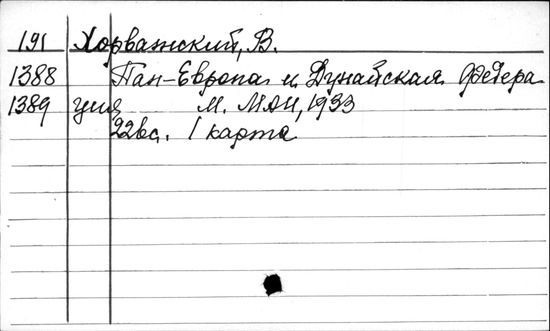 191 Хорватский, В.
1388 Пан-Европа и Дунайская Федера
1389 ция М. МАИ, 1933
22 вс. 1 карта